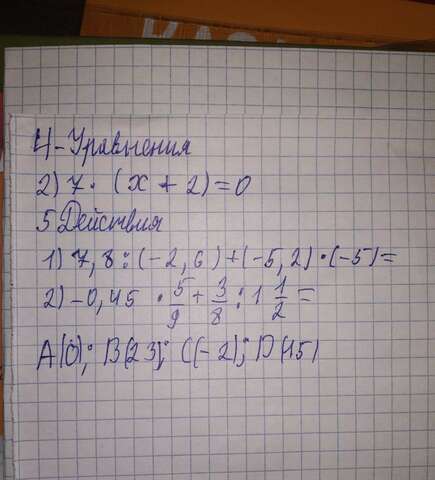 4-Уравнения
2) 7 · (x + 2) = 0
5 Действия
1) 7,8 : (-2,6) + (-5,2) · (-5) =
2) -0,45 · 5/9 + 3/8 : 1 1/2 =
A(0); B(23); C(-2); D(15)